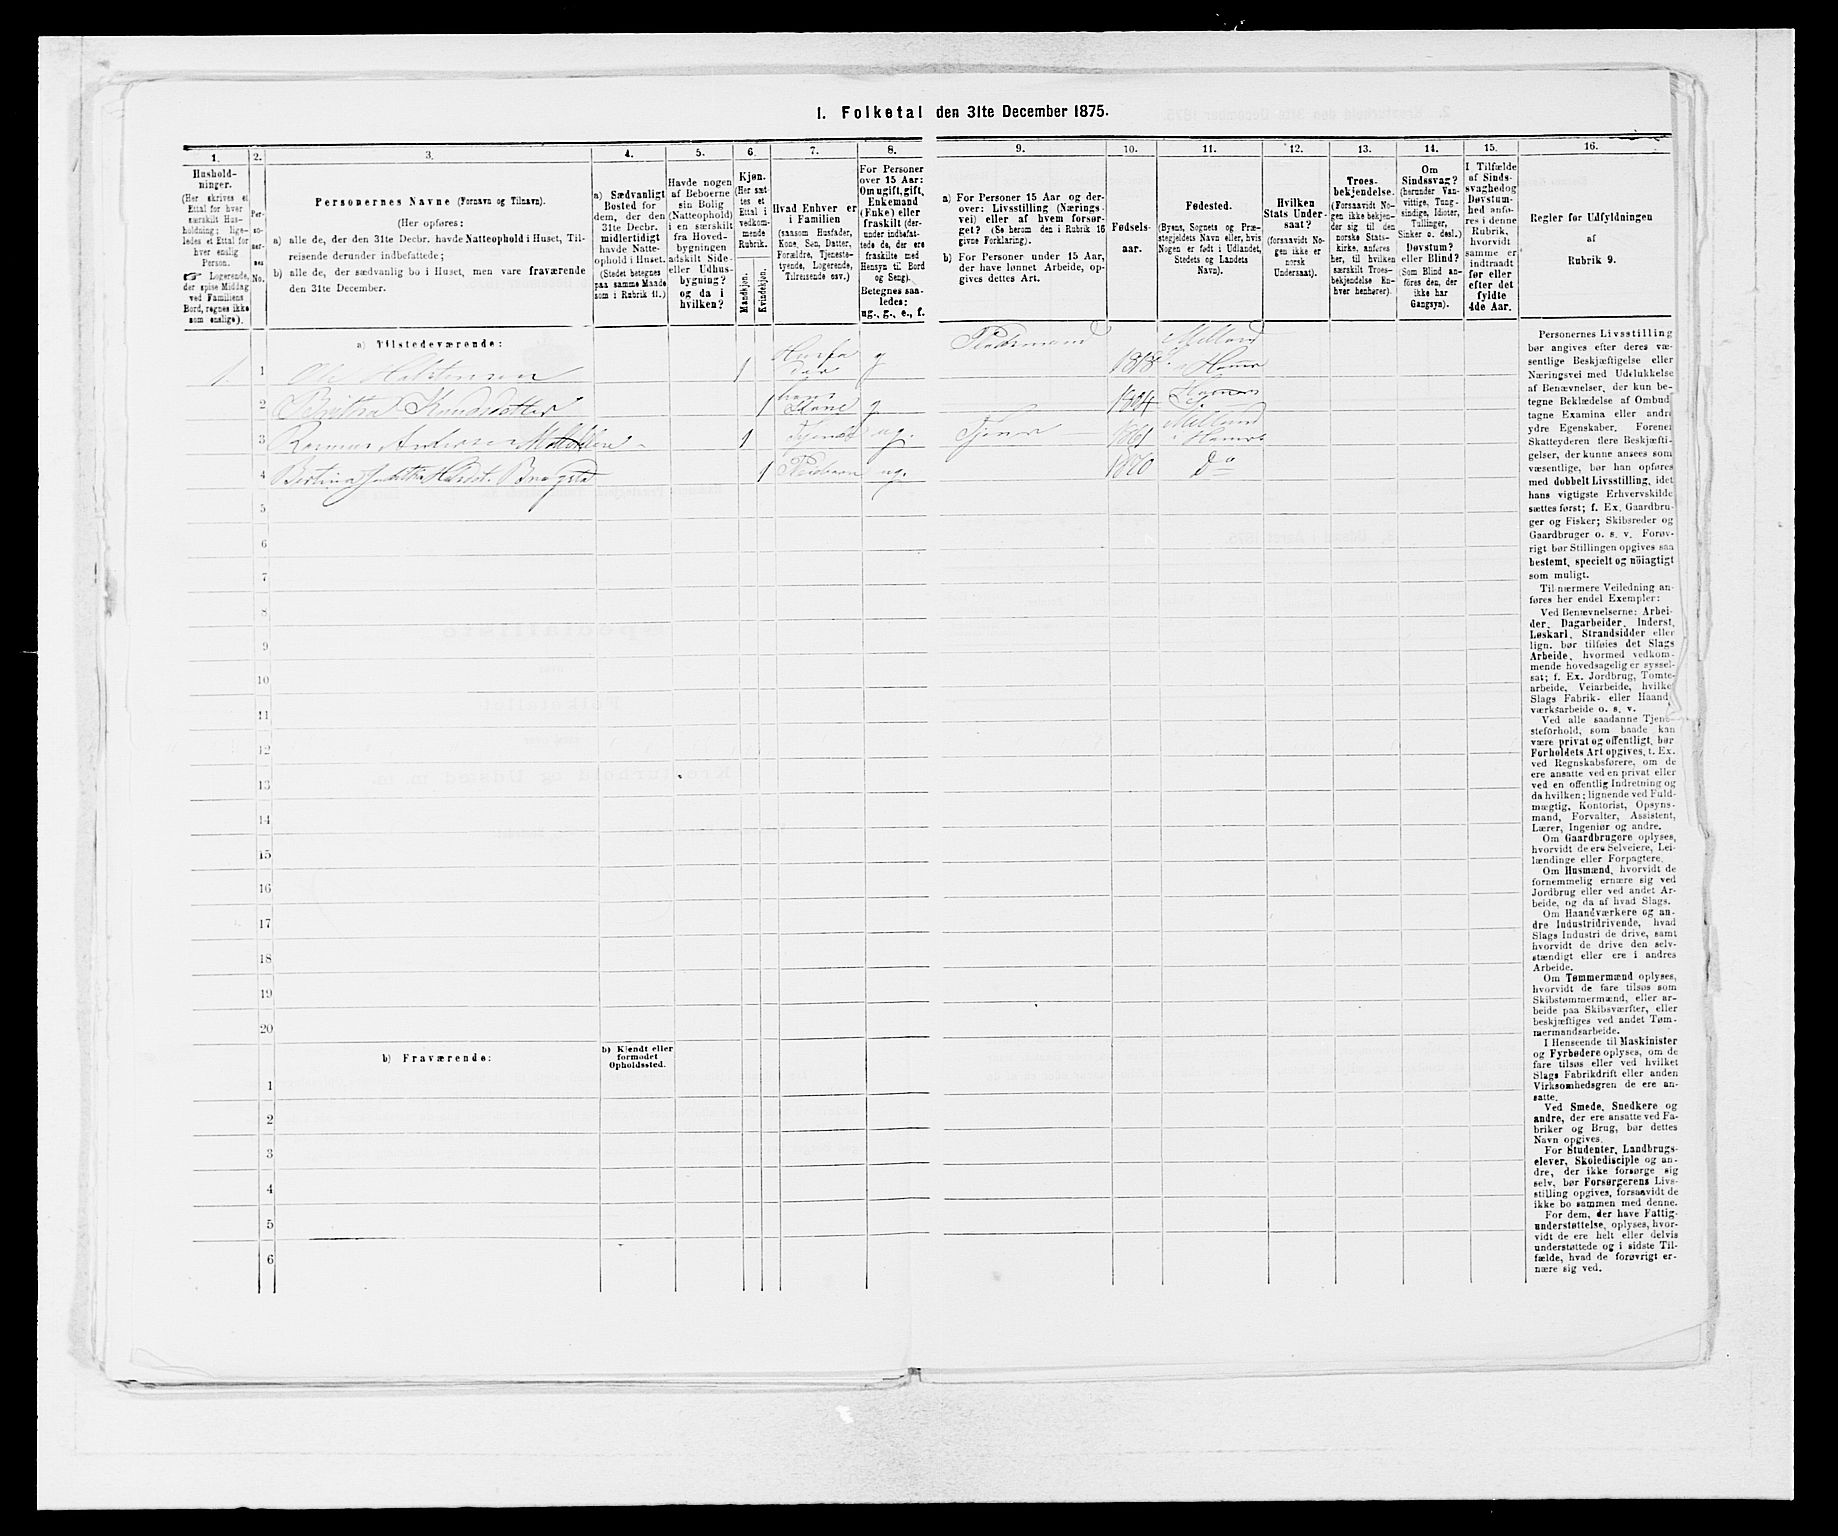 1. Folketal den 31te December 1875.
1.
Hushold-
ninger.
(Her skrives et
Ettal for hver
særskilt Hus-
holdning; lige-
ledes et Ettal for
hver enslig
Person.
☞ Logerende,
der spise Middag
ved Familiens
Bord, regnes ikke
som enslige).
2.
Per-
so-
ner-
nes
No.
3.
Personernes Navne (Fornavn og Tilnavn).
(Her opføres:
a) alle de, der den 31te Decbr. havde Natteophold i Huset, Til-
reisende derunder indbefattede;
b) alle de, der sædvanlig bo i Huset, men vare fraværende
den 31te December.
4.
a) Sædvanligt
Bosted for
dem, der den
31te Decbr.
midlertidigt
havde Natte-
ophold i Huset.
(Stedet betegnes
paa samme Maade
som i Rubrik 11.)
5.
Havde nogen
af Beboerne
sin Bolig
(Natteophold)
i en særskilt
fra Hoved-
bygningen
adskilt Side-
eller Udhus-
bygning?
og da i
hvilken?
6.
Kjøn.
(Her sæt-
tes et
Ettal i
vedkom-
mende
Rubrik.
Mandkjøn.
Kvindekjøn.
7.
Hvad Enhver er
i Familien
(saasom Husfader,
Kone, Søn, Datter,
Forældre, Tjeneste-
tyende, Logerende,
Tilreisende osv.)
8.
For Personer
over 15 Aar:
Om ugift, gift,
Enkemand
(Enke) eller
fraskilt (der-
under indbefat-
tede de, der ere
fraskilte med
Hensyn til Bord
og Seng).
Betegnes saa-
ledes:
ug., g., e., f.
9.
a) For Personer 15 Aar og der-
over: Livsstilling (Nærings-
vei) eller af hvem forsør-
get? (Se herom den i Rubrik 16
givne Forklaring).
b) For Personer under 15 Aar,
der have lønnet Arbeide, op-
gives dettes Art.
10.
Fødsels-
aar.
11.
Fødested.
(Byens, Sognets og Præ-
stegjeldets Navn eller, hvis
Nogen er født i Udlandet,
Stedets og Landets
Navn).
12.
Hvilken
Stats Under-
saat?
(forsaavidt No-
gen ikke er
norsk
Undersaat).
13.
Troes-
bekjendelse.
(Forsaavidt No-
gen ikke bekjen-
der sig til den
norske Stats-
kirke, anføres
her, til hvilken
særskilt Troes-
bekjendelse En-
hver henhører).
14.
Om
Sindssvag?
(herunder Van-
vittige, Tung-
sindige, Idioter,
Tullinger,
Sinker o. desl.)
Døvstum?
eller Blind?
(Som Blind an-
føres den, der
ikke har
Gangsyn).
15.
I Tilfælde
af Sinds-
svaghed og
Døvstum-
hed anfø-
res i denne
Rubrik,
hvorvidt
samme er
indtraadt
før eller
efter det
fyldte
4de Aar.
16.
Regler for Udfyldningen
af
Rubrik 9.
a) Tilstedeværende:
1. 1 Ole Halstensen 1 Husfa
der g Pladsmand 1818
2 Britha Knudsdatter 1 hans
Kone g
3 Rasmus Andersen 1 ug. 1861
4 Bertina 1 Pleiebarn ug. 1870 Do
5
6
7
8
9
10
11
12
13
14
15
16
17
18
19
20
b) Fraværende:
b) Kjendt eller
formodet
Opholdssted.
1
2
3
4
5
6
Personernes Livsstilling
bør angives efter deres væ-
sentlige Beskjæftigelse eller
Næringsvei med Udelukkelse
af Benævnelser, der kun be-
tegne Beklædelse af Ombud,
tagne Examina eller andre
ydre Egenskaber. Forener
Skatteyderen flere Beskjæfti-
gelser, der kunne ansees som
væsentlige, bør han opføres
med dobbelt Livsstilling, idet
hans vigtigste Erhvervskilde
sættes først; f. Ex. Gaardbru-
ger og Fisker; Skibsreder og
Gaardbruger o. s. v. Forøv-
rigt bør Stillingen opgives saa
bestemt, specielt og nöiagtigt
som muligt.
Til nærmere Veiledning an-
føres her endel Exempler:
Ved Benævnelserne: Arbei-
der, Dagarbeider, Inderst,
Løskarl, Strandsidder eller
lign. bør tilføies det Slags
Arbeide, hvormed vedkom-
mende hovedsagelig er syssel-
sat; f. Ex. Jordbrug, Tomte-
arbeide, Veiarbeide, hvilke
Slags Fabrik- eller Haand-
værksarbeide o. s. v.
Ved alle saadanne Tjene-
steforhold, som baade kan
være privat og offentligt, bør
Forholdets Art opgives, t. Ex.
ved Regnskabsførere, om de
ere ansatte ved en privat eller
ved en offentlig Indretning og
da hvilken; lignende ved Fuld-
mægtig, Kontorist, Opsyns-
mand, Forvalter, Assistent,
Lærer, Ingeniør og andre.
Om Gaardbrugere oplyses,
hvorvidt de ere Selveiere, Lei-
lændinge eller Forpagtere.
Om Husmænd, hvorvidt de
fornemmelig ernære sig ved
Jordbrug eller ved andet Ar-
beide, og da af hvad Slags.
Om Haandværkere og an-
dre Industridrivende, hvad
Slags Industri de drive, samt
hvorvidt de drive den selv-
stændigt eller ere i andres
Arbeide.
Om Tømmermænd oplyses,
hvorvidt de fare tilsøs som
Skibstømmermænd, eller ar-
beide paa Skibsværfter, eller
beskjæftiges ved andet Tøm-
mermandsarbeide.
I Henseende til Maskinister
og Fyrbødere oplyses, om de
fare tilsøs eller ved hvilket
Slags Fabrikdrift eller anden
Virksomhedsgren de ere an-
satte.
Ved Smede, Snedkere og
andre, der ere ansatte ved Fa-
briker og Brug, bør dettes
Navn opgives.
For Studenter, Landbrugs-
elever, Skoledisciple og an-
dre, der ikke forsørge sig
selv, bør Forsørgerens Livs-
stilling opgives, forsaavidt de
ikke bo sammen med denne.
For dem, der have Fattig-
understøttelse, oplyses, hvor-
vidt de ere helt eller delvis
understøttede og i sidste Til-
fælde, hvad de forøvrigt er-
nære sig ved.